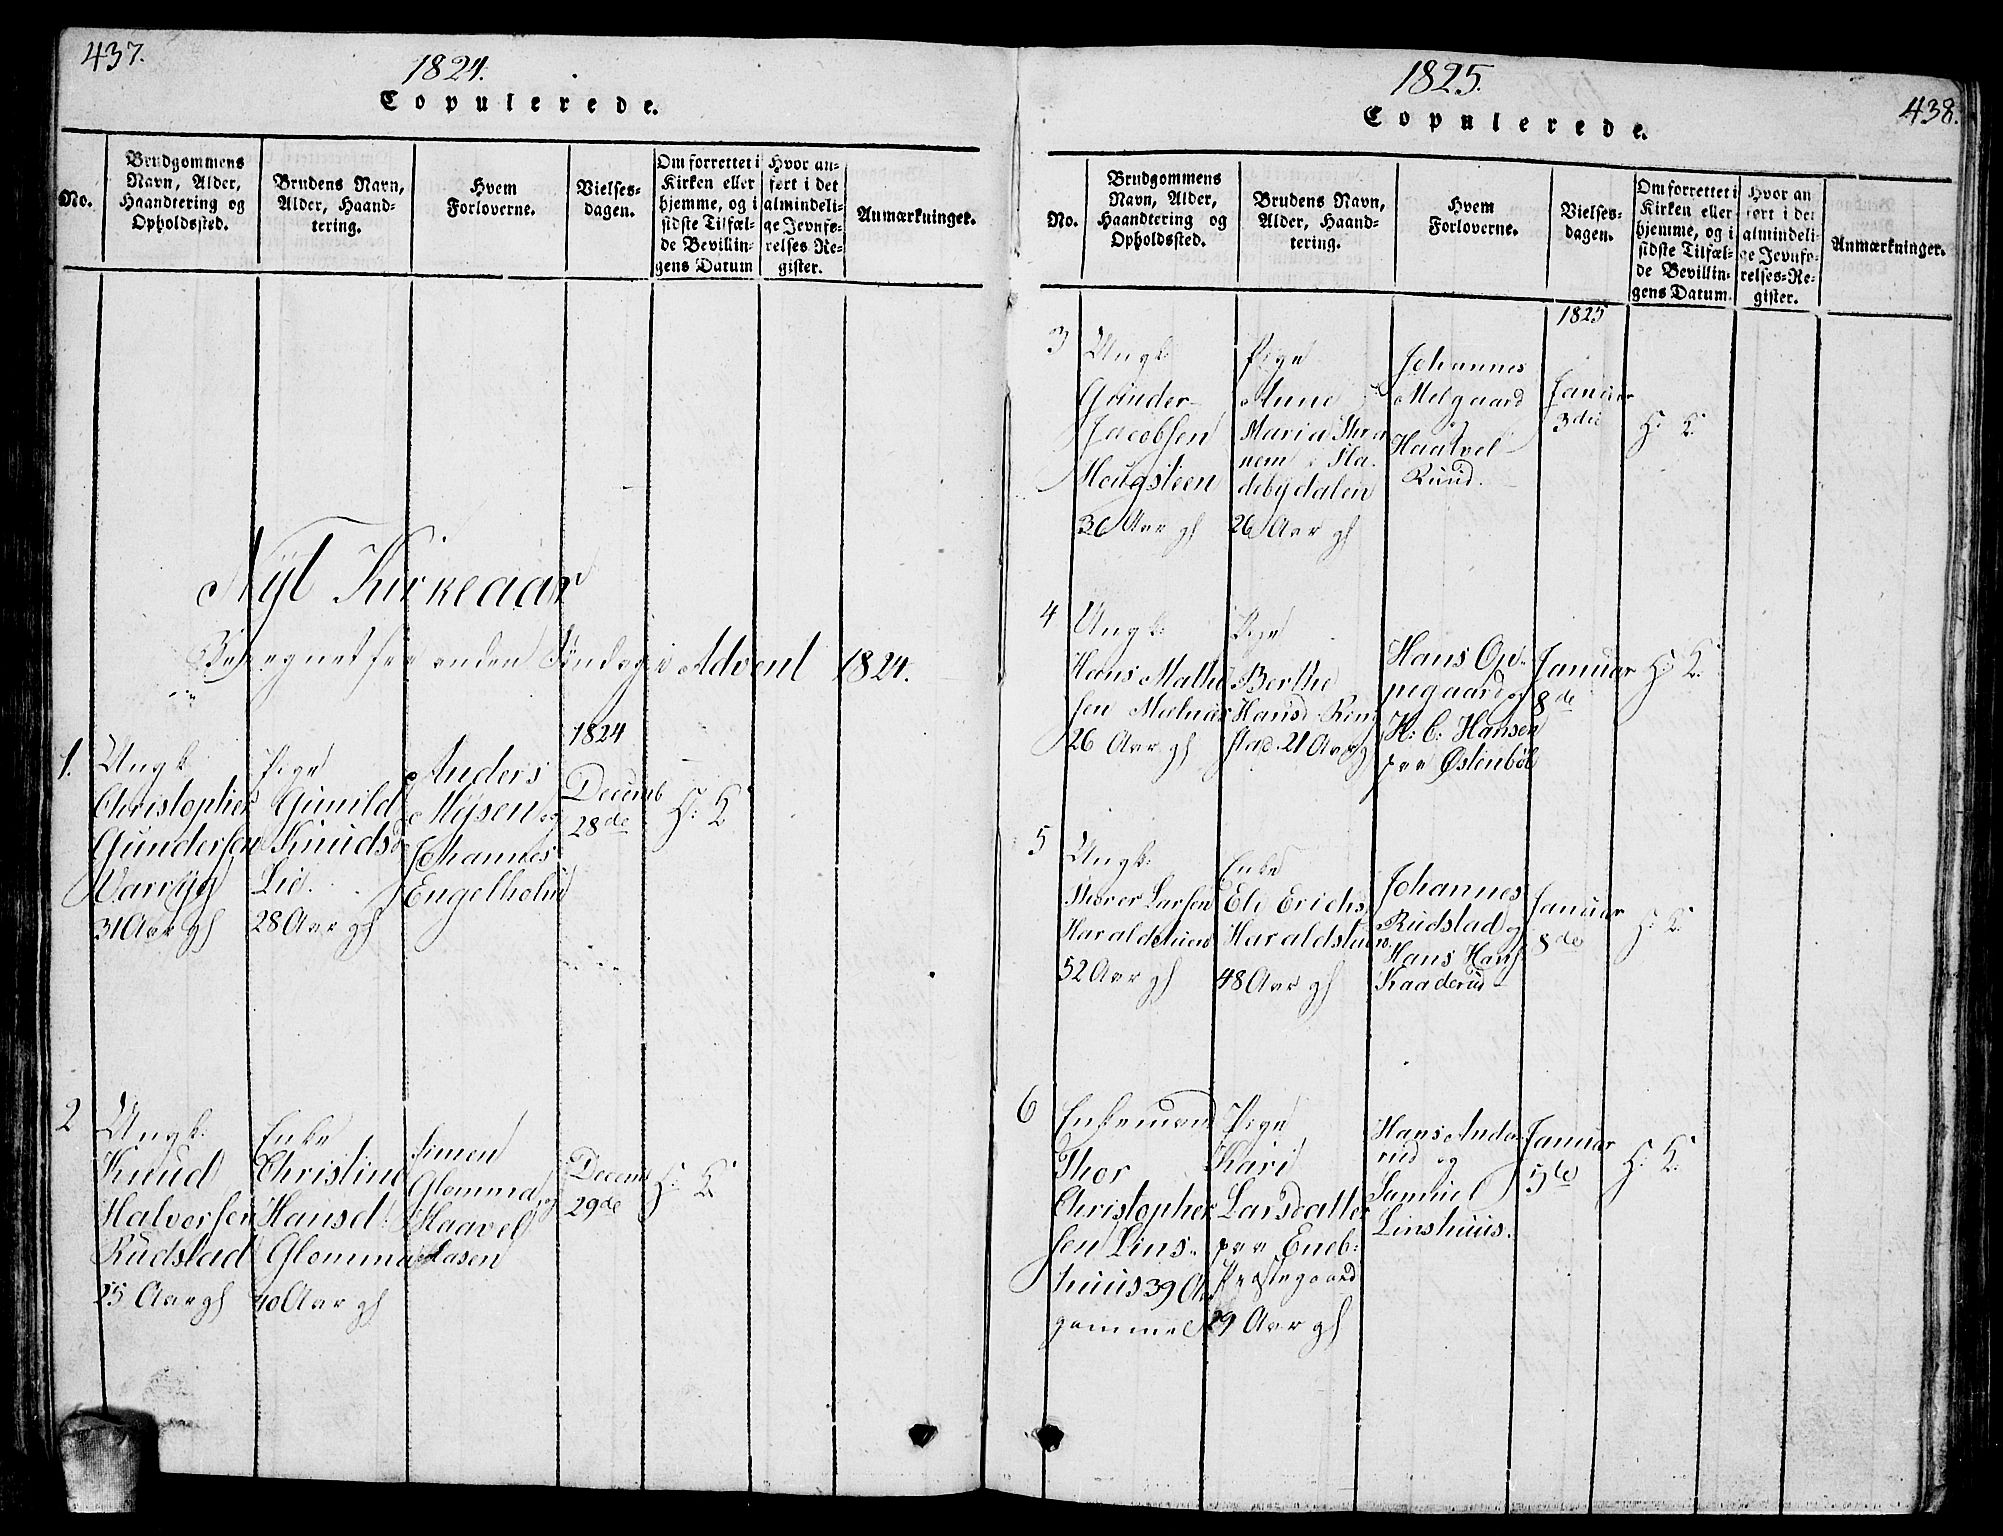 437.
1824.
Copulerede.
No.
Brudgommens
Navn, Alder,
Haandtering og
Opholdssted.
Brudens Navn,
Alder, Haand-
tering.
Hvem
Forloverne.
Vielses-
dagen.
Om forrettet i
Kirken eller
hjemme, og i
sidste Tilfæl-
de Bevillin-
gens Datum
Hvor an-
ført i det
almindeli-
ge Jevnfø-
relses-Re-
gister.
Anmærkninger.
Nyt Kirkeaar
Beregnet fra anden Søndag i Advent 1824.
1.
Ungk.
Christopher
Gundersen
31 Aar gl
Pige
Gunild
Knudsd
Lie.
28 Aar gl
Anders
Mysen og
Johannes
Engelholm
1824
Decemb
28de
H: K
2
Ungk.
Knud
Halvorsen
Rudstad
25 Aar gl
Enke
Christine
Hansd:
Glomma
40 Aar gl
Simen
Glomma og
Haavel
Aasen
Decemb
29de
H: K
1825.
Copulerede.
438.
No.
Brudgommens
Navn, Alder,
Haandtering og
Opholdssted.
Brudens Navn,
Alder, Haand-
tering.
Hvem
Forloverne.
Vielses-
dagen.
Om forrettet i
Kirken eller
hjemme, og i
sidste Tilfæl-
de Bevillin-
gens Datum.
Hvor an
ført i det
almindeli-
ge Jevnfø-
relses-Re-
gister.
Anmærkninger.
3
Ungk.
Gunder
Jacobsen
36 Aar gl
Pige
Anne
Maria
debydalen
26 Aar gl
Johannes
Melgaard
og
Haavel
Ruud.
1825
Januar
3die
H: K.
4
Ungk:
Hans Mathi
sen
26 Aar gl
Pige
Berthe
Hansd
stad. 21 Aar g
Hans Op-
pegaard og
H: C: Hansen
paa Østenbøl
Januar
8de
H: K.
5
Ungk:
Thorer Larsen
Haraldstuen
52 Aar gl
Enke
Eli Erichs
Haraldstuen
48 Aar gl
Johannes
Rudstad og
Hans Hans
Kaaderud
Januar
8de
H: K.
6
Enkemand
Thor
Christopher
sen Lins-
huus 39 Aar
gammel
Pige
Kari
Larsdatter
paa Eneb:
Præstegaard
29 Aar gl
Hans Ande
rud og
Samuel
Linshuus.
Januar
5te
H: K.